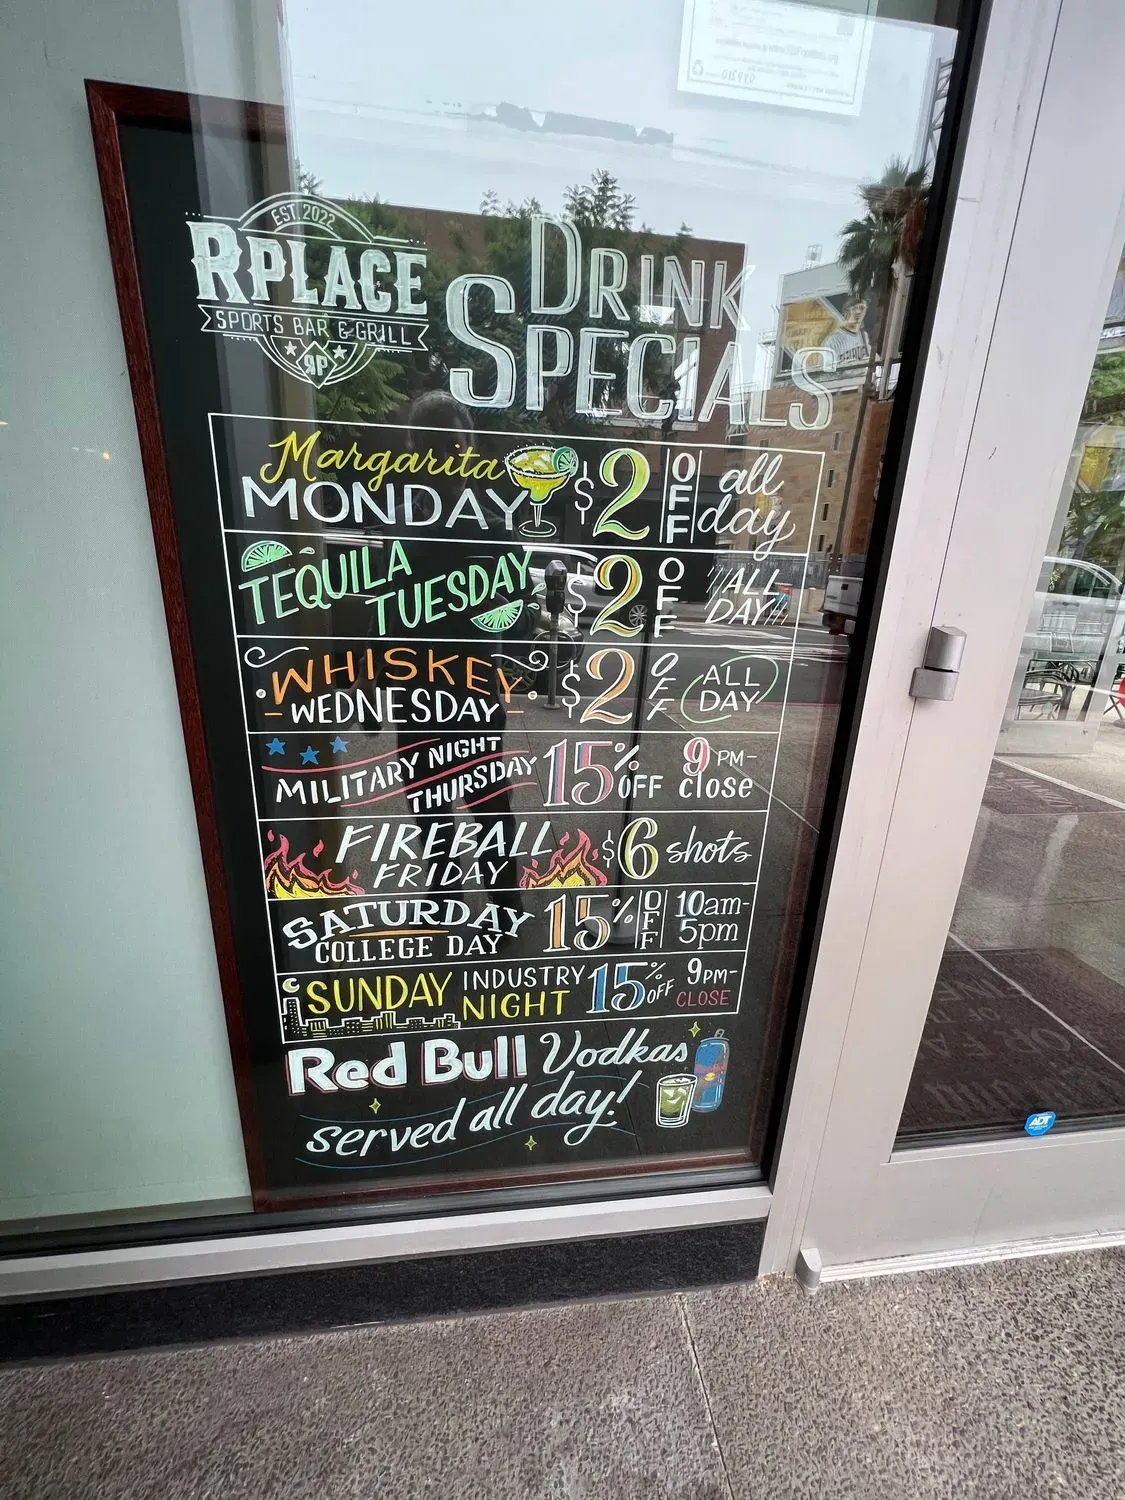 EST. 2022
RPLACE
SPORTS BAR & GRILL
RP
DRINK
SPECIALS
Margarita
MONDAY
$2 OFF all day
TEQUILA
TUESDAY
$2 OFF ALL DAY
WHISKEY
WEDNESDAY
$2 OFF ALL DAY
MILITARY NIGHT
THURSDAY
15% OFF 9 PM-close
FIREBALL
FRIDAY
$6 shots
SATURDAY
COLLEGE DAY
15% OFF 10am-5pm
SUNDAY INDUSTRY NIGHT
15% OFF 9PM-CLOSE
Red Bull Vodkas
served all day!
ADT